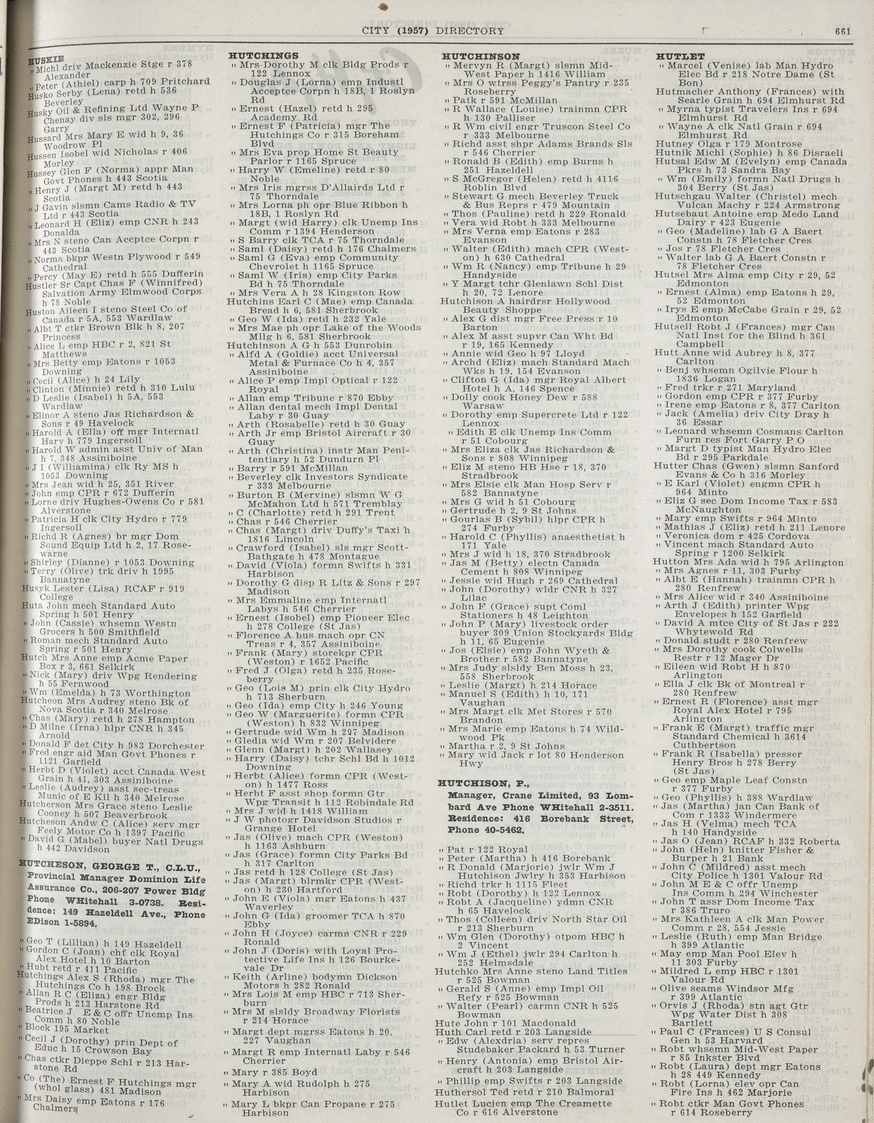 CITY (1957) DIRECTORY
661
HUSKIE
" Michl driv Mackenzie Stge r 378
Alexander
" Peter (Athiel) carp h 709 Pritchard
Husko Serby (Lena) retd h 536
Beverley
Husky Oil & Refining Ltd Wayne P
Chenay div sls mgr 302, 296
Garry
Hussard Mrs Mary E wid h 9, 36
Woodrow Pl
Hussen Isobel wid Nicholas r 406
Morley
Hussey Glen F (Norma) appr Man
Govt Phones h 443 Scotia
" Henry J (Margt M) retd h 443
Scotia
" J Gavin slsmn Cams Radio & TV
Ltd r 443 Scotia
" Leonard H (Eliz) emp CNR h 243
Donalda
" Mrs N steno Can Accptce Corpn r
443 Scotia
" Norma bkpr Westn Plywood r 549
Cathedral
" Percy (May E) retd h 555 Dufferin
Hustler Sr Capt Chas F (Winnifred)
Salvation Army Elmwood Corps
h 78 Noble
Huston Aileen I steno Steel Co of
Canada r 5A, 553 Wardlaw
" Albt T ctkr Brown Blk h 8, 207
Princess
" Alice L emp HBC r 2, 821 St
Matthews
" Mrs Betty emp Eatons r 1053
Downing
" Cecil (Alice) h 24 Lily
" Clinton (Minnie) retd h 310 Lulu
" D Leslie (Isobel) h 5A, 553
Wardlaw
" Elinor A steno Jas Richardson &
Sons r 49 Havelock
" Harold A (Ella) off mgr Internatl
Harv h 779 Ingersoll
" Harold W admin asst Univ of Man
h 7, 348 Assiniboine
" J I (Williamina) clk Ry MS h
1053 Downing
" Mrs Jean wid h 25, 351 River
" John emp CPR r 672 Dufferin
" Lorne driv Hughes-Owens Co r 581
Alverstone
" Patricia H clk City Hydro r 779
Ingersoll
" Richd R (Agnes) br mgr Dom
Sound Equip Ltd h 2, 17 Rose-
warne
" Shirley (Dianne) r 1053 Downing
" Terry (Olive) trk driv h 1995
Bannatyne
Husyk Lester (Lisa) RCAF r 919
College
Huta John mech Standard Auto
Spring h 501 Henry
" John (Cassie) whsemn Westn
Grocers h 500 Smithfield
" Roman mech Standard Auto
Spring r 501 Henry
Hutch Mrs Anne emp Acme Paper
Box r 3, 661 Selkirk
" Nick (Mary) driv Wpg Rendering
h 55 Fernwood
" Wm (Emelda) h 73 Worthington
Hutcheon Mrs Audrey steno Bk of
Nova Scotia r 340 Melrose
" Chas (Mary) retd h 278 Hampton
" D Milne (Irna) hlpr CNR h 345
Arnold
" Donald F det City h 983 Dorchester
" Fred engr aid Man Govt Phones r
1121 Garfield
" Herbt D (Violet) acct Canada West
Grain h 41, 303 Assiniboine
" Leslie (Audrey) asst sec-treas
Munic of E Kil h 340 Melrose
Hutcherson Mrs Grace steno Leslie
Cooney h 507 Beaverbrook
Hutcheson Andw C (Alice) serv mgr
Feely Motor Co h 1397 Pacific
" David G (Mabel) buyer Natl Drugs
h 442 Davidson
HUTCHESON, GEORGE T., C.L.U.,
Provincial Manager Dominion Life
Assurance Co., 206-207 Power Bldg
Phone WHitehall 3-0738. Resi-
dence: 149 Hazeldell Ave., Phone
EDison 1-5894.
" Geo T (Lillian) h 149 Hazeldell
" Gordon C (Joan) chf clk Royal
Alex Hotel h 10 Barton
" Hubt retd r 411 Pacific
Hutchings Alex S (Rhoda) mgr The
Hutchings Co h 198 Brock
" Allan R C (Eliza) engr Bldg
Prods h 213 Harstone Rd
" Beatrice J E & C offr Unemp Ins
Comm h 80 Noble
" Block 195 Market
" Cecil J (Dorothy) prin Dept of
Educ h 15 Crowson Bay
" Chas ctkr Dieppe Schl r 213 Har-
stone Rd
" Co (The) Ernest F Hutchings mgr
(whol glass) 481 Madison
" Mrs Daisy emp Eatons r 176
Chalmers
HUTCHINGS
" Mrs Dorothy M clk Bldg Prods r
122 Lennox
" Douglas J (Lorna) emp Industl
Acceptce Corpn h 18B, 1 Roslyn
Rd
" Ernest (Hazel) retd h 295
Academy Rd
" Ernest F (Patricia) mgr The
Hutchings Co r 315 Boreham
Blvd
" Mrs Eva prop Home St Beauty
Parlor r 1165 Spruce
" Harry W (Emeline) retd r 80
Noble
" Mrs Iris mgrss D'Allairds Ltd r
75 Thorndale
" Mrs Lorna ph opr Blue Ribbon h
18B, 1 Roslyn Rd
" Margt (wid Harry) clk Unemp Ins
Comm r 1394 Henderson
" S Barry clk TCA r 75 Thorndale
" Saml (Daisy) retd h 176 Chalmers
" Saml G (Eva) emp Community
Chevrolet h 1165 Spruce
" Saml W (Iris) emp City Parks
Bd h 75 Thorndale
" Mrs Vera A h 28 Kingston Row
Hutchins Earl C (Mae) emp Canada
Bread h 6, 581 Sherbrook
" Geo W (Ida) retd h 232 Yale
" Mrs Mae ph opr Lake of the Woods
Millg h 6, 581 Sherbrook
Hutchinson A G h 553 Dunrobin
" Alfd A (Goldie) acct Universal
Metal & Furnace Co h 4, 357
Assiniboine
" Alice P emp Impl Optical r 122
Royal
" Allan emp Tribune r 870 Ebby
" Allan dental mech Impl Dental
Laby r 30 Guay
" Arth (Rosabelle) retd h 30 Guay
" Arth Jr emp Bristol Aircraft r 30
Guay
" Arth (Christina) instr Man Peni-
tentiary h 52 Dundurn Pl
" Barry r 591 McMillan
" Beverley clk Investors Syndicate
r 333 Melbourne
" Burton B (Mervine) slsmn W G
McMahon Ltd h 571 Tremblay
" C (Charlotte) retd h 291 Trent
" Chas r 546 Cherrier
" Chas (Margt) driv Duffy's Taxi h
1816 Lincoln
" Crawford (Isabel) sls mgr Scott-
Bathgate h 478 Montague
" David (Viola) formn Swifts h 331
Harbison
" Dorothy G disp R Litz & Sons r 297
Madison
" Mrs Emmaline emp Internatl
Labys h 546 Cherrier
" Ernest (Isobel) emp Pioneer Elec
h 278 College (St Jas)
" Florence A bus mach opr CN
Treas r 4, 357 Assiniboine
" Frank (Mary) storekpr CPR
(Weston) r 1652 Pacific
" Fred J (Olga) retd h 235 Rose-
berry
" Geo (Lois M) prin clk City Hydro
h 713 Sherburn
" Geo (Ida) emp City h 246 Young
" Geo W (Marguerite) formn CPR
(Weston) h 832 Winnipeg
" Gertrude wid Wm h 297 Madison
" Gledia wid Wm r 207 Belvidere
" Glenn (Margt) h 202 Wallasey
" Harry (Daisy) tchr Schl Bd h 1012
Downing
" Herbt (Alice) formn CPR (West-
on) h 1477 Ross
" Herbt F asst shop formn Gtr
Wpg Transit h 112 Robindale Rd
" Mrs J wid h 1418 William
" J W photogr Davidson Studios r
Grange Hotel
" Jas (Olive) mach CPR (Weston)
h 1163 Ashburn
" Jas (Grace) formn City Parks Bd
h 317 Carlton
" Jas retd h 128 College (St Jas)
" Jas (Margt) blrmkr CPR (West-
on) h 230 Hartford
" John E (Viola) mgr Eatons h 437
Waverley
" John G (Ida) groomer TCA h 870
Ebby
" John H (Joyce) carmn CNR r 229
Ronald
" John J (Doris) with Loyal Pro-
tective Life Ins h 126 Bourke-
vale Dr
" Keith (Arline) bodymn Dickson
Motors h 282 Ronald
" Mrs Lois M emp HBC r 713 Sher-
burn
" Mrs M slsldy Broadway Florists
r 214 Horace
" Margt dept mgrss Eatons h 20,
227 Vaughan
" Margt R emp Internatl Laby r 546
Cherrier
" Mary r 385 Boyd
" Mary A wid Rudolph h 275
Harbison
" Mary L bkpr Can Propane r 275
Harbison
HUTCHINSON
" Mervyn R (Margt) slsmn Mid-
West Paper h 1416 William
" Mrs O wtrss Peggy's Pantry r 235
Roseberry
" Patk r 591 McMillan
" R Wallace (Louise) trainmn CPR
h 130 Palliser
" R Wm civil engr Truscon Steel Co
r 333 Melbourne
" Richd asst shpr Adams Brands Sls
r 546 Cherrier
" Ronald B (Edith) emp Burns h
251 Hazeldell
" S McGregor (Helen) retd h 4116
Roblin Blvd
" Stewart G mech Beverley Truck
& Bus Reprs r 479 Mountain
" Thos (Pauline) retd h 229 Ronald
" Vera wid Robt h 333 Melbourne
" Mrs Verna emp Eatons r 283
Evanson
" Walter (Edith) mach CPR (West-
on) h 630 Cathedral
" Wm R (Nancy) emp Tribune h 29
Handyside
" Y Margt tchr Glenlawn Schl Dist
h 20, 72 Lenore
Hutchison A hairdrsr Hollywood
Beauty Shoppe
" Alex G dist mgr Free Press r 10
Barton
" Alex M asst supvr Can Wht Bd
r 19, 165 Kennedy
" Annie wid Geo h 97 Lloyd
" Archd (Eliz) mach Standard Mach
Wks h 19, 154 Evanson
" Clifton G (Ida) mgr Royal Albert
Hotel h A, 146 Spence
" Dolly cook Honey Dew r 588
Warsaw
" Dorothy emp Supercrete Ltd r 122
Lennox
" Edith E clk Unemp Ins Comm
r 51 Cobourg
" Mrs Eliza clk Jas Richardson &
Sons r 808 Winnipeg
" Eliz M steno HB Hse r 18, 370
Stradbrook
" Mrs Elsie clk Man Hosp Serv r
582 Bannatyne
" Mrs G wid h 51 Cobourg
" Gertrude h 2, 9 St Johns
" Gourlas B (Sybil) hlpr CPR h
274 Furby
" Harold C (Phyllis) anaesthetist h
171 Yale
" Mrs J wid h 18, 370 Stradbrook
" Jas M (Betty) electn Canada
Cement h 808 Winnipeg
" Jessie wid Hugh r 269 Cathedral
" John (Dorothy) wldr CNR h 327
Lilac
" John F (Grace) supt Coml
Stationers h 48 Leighton
" John P (Mary) livestock order
buyer 309 Union Stockyards Bldg
h 11, 65 Eugenie
" Jos (Elsie) emp John Wyeth &
Brother r 582 Bannatyne
" Mrs Judy slsldy Ben Moss h 23,
558 Sherbrook
" Leslie (Margt) h 214 Horace
" Manuel S (Edith) h 10, 171
Vaughan
" Mrs Margt clk Met Stores r 570
Brandon
" Mrs Marie emp Eatons h 74 Wild-
wood Pk
" Martha r 2, 9 St Johns
" Mary wid Jack r lot 80 Henderson
Hwy
HUTCHISON, P.,
Manager, Crane Limited, 93 Lom-
bard Ave Phone WHitehall 2-3511.
Residence: 416 Borebank Street,
Phone 40-5462.
" Pat r 122 Royal
" Peter (Martha) h 416 Borebank
" R Donald (Marjorie) jwlr Wm J
Hutchison Jwlry h 353 Harbison
" Richd trkr h 1115 Fleet
" Robt (Dorothy) h 122 Lennox
" Robt A (Jacqueline) ydmn CNR
h 65 Havelock
" Thos (Colleen) driv North Star Oil
r 213 Sherburn
" Wm Glen (Dorothy) otpom HBC h
2 Vincent
" Wm J (Ethel) jwlr 294 Carlton h
252 Helmsdale
Hutchko Mrs Anne steno Land Titles
r 525 Bowman
" Gerald S (Anne) emp Impl Oil
Refy r 525 Bowman
" Walter (Pearl) carmn CNR h 525
Bowman
Hute John r 101 Macdonald
Huth Carl retd r 203 Langside
" Edw (Alexdria) serv repres
Studebaker Packard h 53 Turner
" Henry (Antonia) emp Bristol Air-
craft h 203 Langside
" Phillip emp Swifts r 203 Langside
Huthersol Ted retd r 210 Balmoral
Hutlet Lucien emp The Creamette
Co r 616 Alverstone
HUTLET
" Marcel (Venise) lab Man Hydro
Elec Bd r 218 Notre Dame (St
Bon)
Hutmacher Anthony (Frances) with
Searle Grain h 694 Elmhurst Rd
" Myrna typist Travelers Ins r 694
Elmhurst Rd
" Wayne A clk Natl Grain r 694
Elmhurst Rd
Hutney Olga r 179 Montrose
Hutnik Michl (Sophie) h 86 Disraeli
Hutsal Edw M (Evelyn) emp Canada
Pkrs h 73 Sandra Bay
" Wm (Emily) formn Natl Drugs h
304 Berry (St Jas)
Hutschgau Walter (Christel) mech
Vulcan Machy r 224 Armstrong
Hutsebaut Antoine emp Medo Land
Dairy r 423 Eugenie
" Geo (Madeline) lab G A Baert
Constn h 78 Fletcher Cres
" Jos r 78 Fletcher Cres
" Walter lab G A Baert Constn r
78 Fletcher Cres
Hutsel Mrs Alma emp City r 29, 52
Edmonton
" Ernest (Alma) emp Eatons h 29,
52 Edmonton
" Irys E emp McCabe Grain r 29, 52
Edmonton
Hutsell Robt J (Frances) mgr Can
Natl Inst for the Blind h 361
Campbell
Hutt Anne wid Aubrey h 8, 377
Carlton
" Benj whsemn Ogilvie Flour h
1836 Logan
" Fred trkr r 271 Maryland
" Gordon emp CPR r 377 Furby
" Irene emp Eatons r 8, 377 Carlton
" Jack (Amelia) driv City Dray h
36 Essar
" Leonard whsemn Cosmans Carlton
Furn res Fort Garry P O
" Margt D typist Man Hydro Elec
Bd r 295 Parkdale
Hutter Chas (Gwen) slsmn Sanford
Evans & Co h 316 Morley
" E Karl (Violet) engmn CPR h
964 Minto
" Eliz G sec Dom Income Tax r 583
McNaughton
" Mary emp Swifts r 964 Minto
" Mathias J (Eliz) retd h 211 Lenore
" Veronica dom r 425 Cordova
" Vincent mach Standard Auto
Spring r 1200 Selkirk
Hutton Mrs Ada wid h 795 Arlington
" Mrs Agnes r 11, 303 Furby
" Albt E (Hannah) trainmn CPR h
280 Renfrew
" Mrs Alice wid r 340 Assiniboine
" Arth J (Edith) printer Wpg
Envelopes h 152 Garfield
" David A mtce City of St Jas r 222
Whytewold Rd
" Donald studt r 280 Renfrew
" Mrs Dorothy cook Colwells
Restr r 12 Mager Dr
" Eileen wid Robt H h 870
Arlington
" Ella J clk Bk of Montreal r
280 Renfrew
" Ernest R (Florence) asst mgr
Royal Alex Hotel r 795
Arlington
" Frank E (Margt) traffic mgr
Standard Chemical h 3614
Cuthbertson
" Frank R (Isabella) presser
Henry Bros h 278 Berry
(St Jas)
" Geo emp Maple Leaf Constn
r 377 Furby
" Geo (Phyllis) h 388 Wardlaw
" Jas (Martha) jan Can Bank of
Com r 1333 Windermere
" Jas H (Velma) mech TCA
h 140 Handyside
" Jas O (Jean) RCAF h 332 Roberta
" John (Heln) knitter Fisher &
Burper h 21 Bank
" John C (Mildred) asst mech
City Police h 1301 Valour Rd
" John M E & C offr Unemp
Ins Comm h 294 Winchester
" John T assr Dom Income Tax
r 386 Truro
" Mrs Kathleen A clk Man Power
Comm r 28, 554 Jessie
" Leslie (Ruth) emp Man Bridge
h 399 Atlantic
" May emp Man Pool Elev h
11 303 Furby
" Mildred L emp HBC r 1301
Valour Rd
" Olive seams Windsor Mfg
r 399 Atlantic
" Orvis J (Rhoda) stn agt Gtr
Wpg Water Dist h 308
Bartlett
" Paul C (Frances) U S Consul
Gen h 53 Harvard
" Robt whsemn Mid-West Paper
r 85 Inkster Blvd
" Robt (Laura) dept mgr Eatons
h 28 449 Kennedy
" Robt (Lorna) elev opr Can
Fire Ins h 462 Marjorie
" Robt ctkr Man Govt Phones
r 614 Roseberry